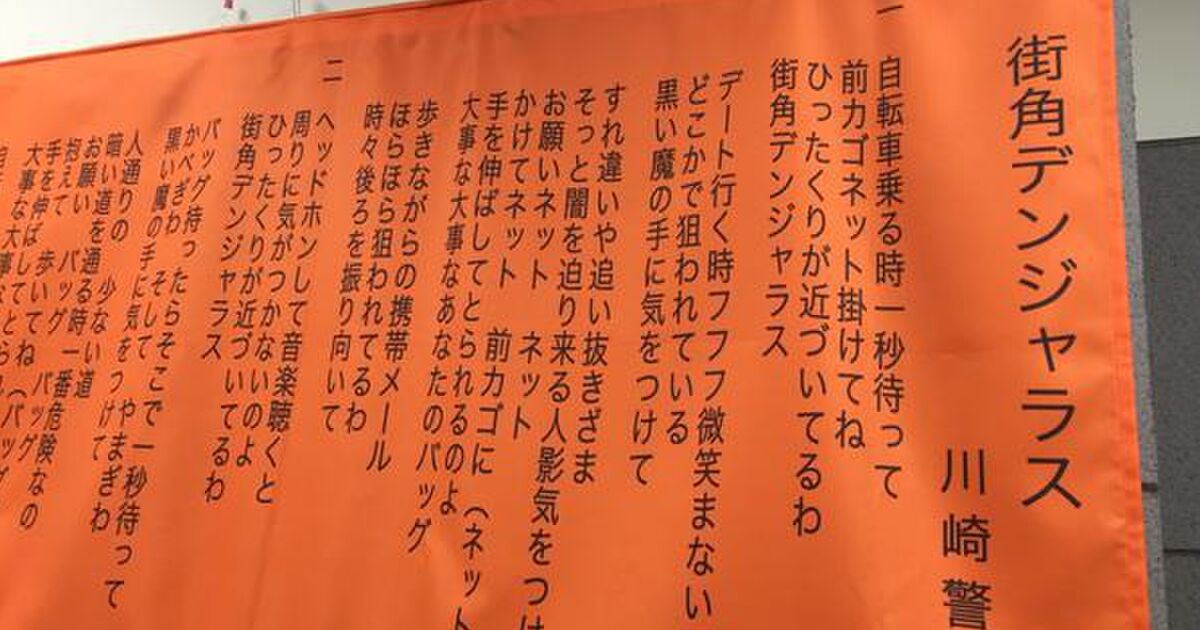 街角デンジャラス
川崎警
一
自転車乗る時一秒待って
前カゴネット掛けてね
ひったくりが近づいてるわ
街角デンジャラス
デート行く時フフフ微笑まない
どこかで狙われている
黒い魔の手に気をつけて
すれ違いや追い抜きざま
そっと闇を迫り来る人影気をつけ
お願いネット ネット
かけてネット 前カゴに(ネット
手を伸ばしてとられるのよ
大事な大事なあなたのバッグ
歩きながらの携帯メール
ほらほら狙われてるわ
時々後ろを振り向いて
二
ヘッドホンして音楽聴くと
周りに気がつかないのよ
ひったくりが近づいてるわ
街角デンジャラス
バッグ待ったらそこで一秒待って
かべぎわ そして やまぎわ
黒い魔の手に気をつけて
人通りの 少ない道
暗い道を通る時一番危険なの
お願い バッグ バッグ
抱えて 歩いてね(バッグ
手を伸ばしてとられ
大事な大事な